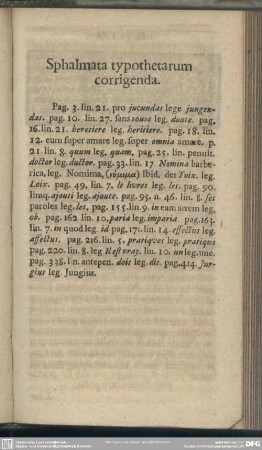 Sphalmata typothetarum
corrigenda.
Pag. 3. lin. 21. pro jucundas lege jungen-
das. pag. 10. lin. 27. sans leg. doute. pag.
16. lin. 21. heretiere leg. heritiere. pag. 18. lin.
12. eum super amare leg. super omnia amare. p.
21. lin. 8. quum leg. quam. pag. 25. lin. penult.
doctor leg. ductor. pag. 33. lin. 17 Nomina barbe-
rica, leg. Nomima, (νόμιμα) Ibid. des Toix. leg.
Loix. pag. 49. lin. 7. le livres leg. les. pag. 90.
ajouti leg. ajoute. pag. 95. n. 46. lin. 8. ses
paroles leg. les, pag. 155. lin. 9. in eam leg.
ob. pag. 162 lin. 10. paria leg. imparia pag. 163.
lin. 7. in quod leg. id pag. 171. lin. 14. effectus leg.
affectus. pag. 216. lin. 5. pratiques leg. pratique
pag. 220. lin. 8. leg Il est vray. lin. 10. un leg. une.
pag. 338. lin. antepen. dois leg. dit. pag. 414. Jur-
gius leg. Jungius.